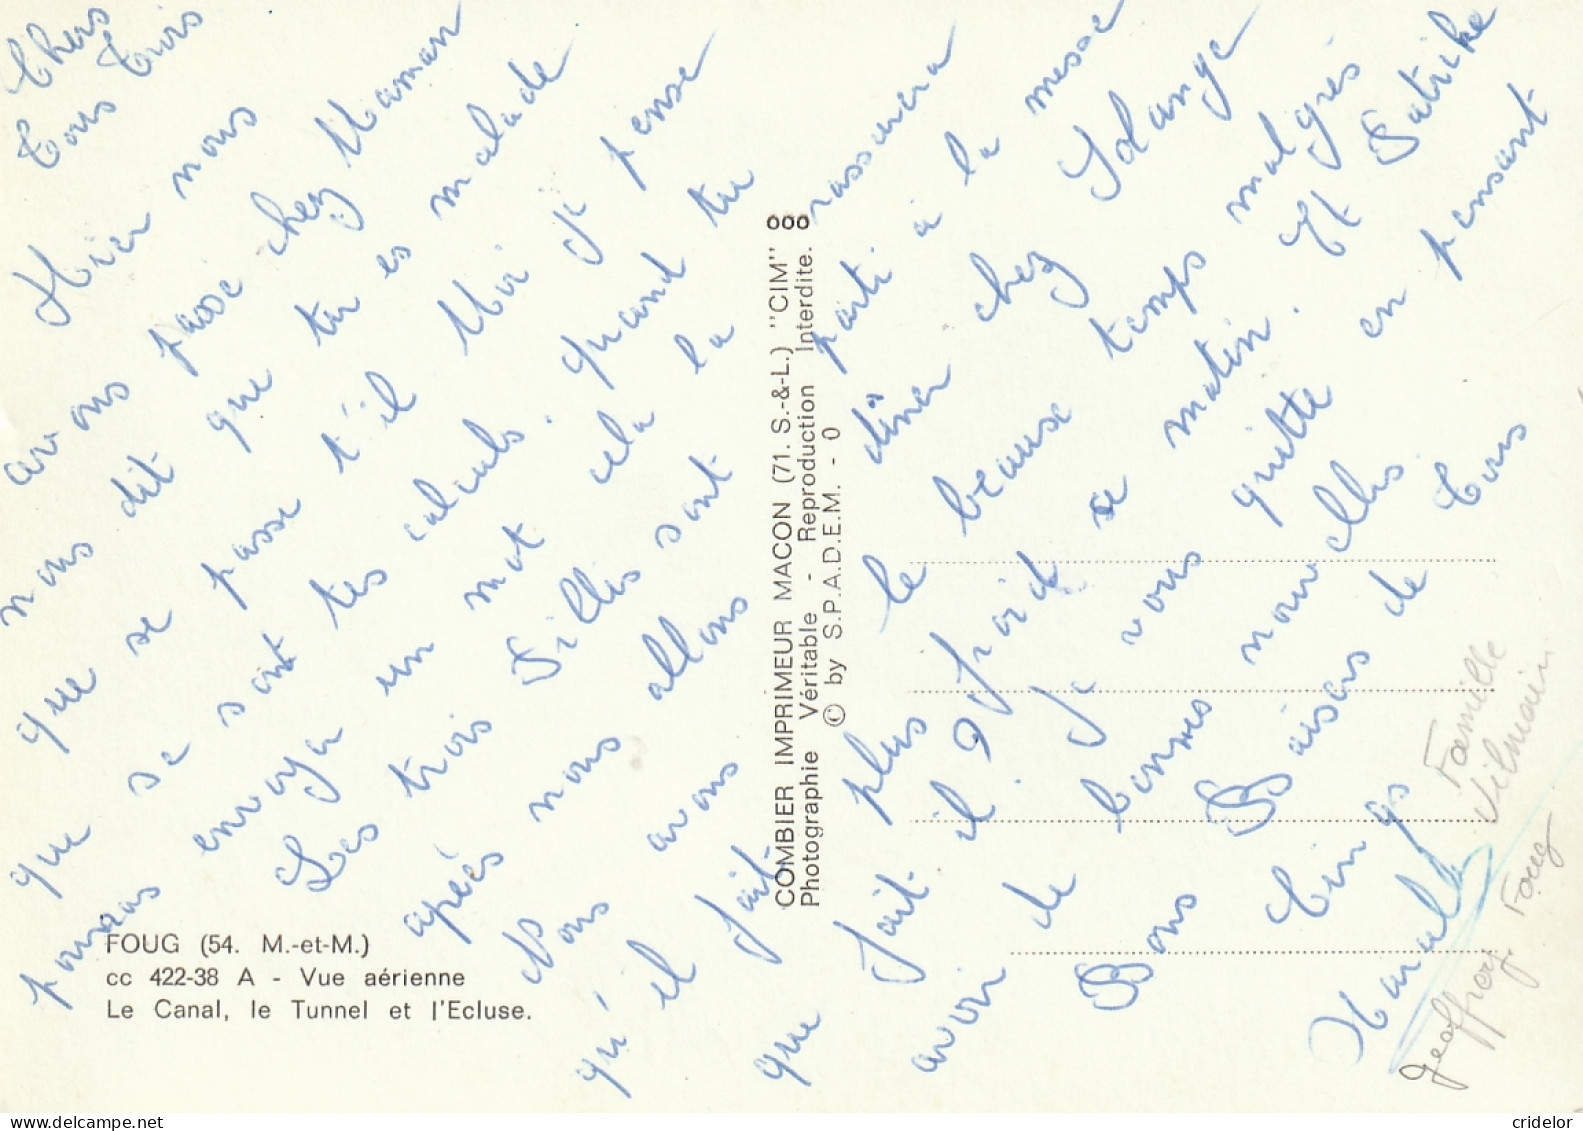 Chers
Tous Trois
Hier nous
avons passé chez Maman
nous dit que tu es malade
que se passe t'il Moi je pense
que se sont tes calculs. quand tu
pourras envoya un mot cela la rassurera
Les trois filles sont parti à la messe
après nous allons dîner chez Solange
Nous avons le beause temps malgrés
qu'il fait plus froid se matin. Et Patrike
que fait-il? Je vous quitte en pensant
avoir de bonnes nouvelles
Bons Baisers de Tous
Cinqs
COMBIER IMPRIMEUR MACON (71. S.-&-L.) "CIM"
Photographie Véritable - Reproduction Interdite.
© by S.P.A.D.E.M. - 0
FOUG (54. M.-et-M.)
cc 422-38 A - Vue aérienne
Le Canal, le Tunnel et l'Ecluse.
Famille
Geoffroy. Foug
cridelor
delcampe.net